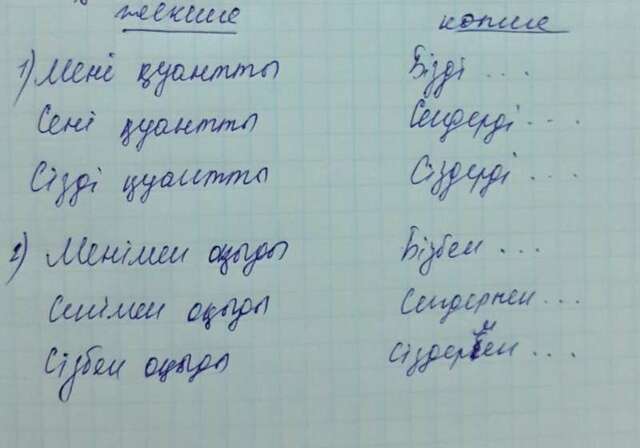 жекше көпше
1) Мені қуантты Бізді ...
Сені қуантты Сендерді ...
Сізді қуантты Сіздерді ...
2) Менімен оқыды Бізбен ...
Сенімен оқыды Сендермен ...
Сізбен оқыды Сіздермен ...